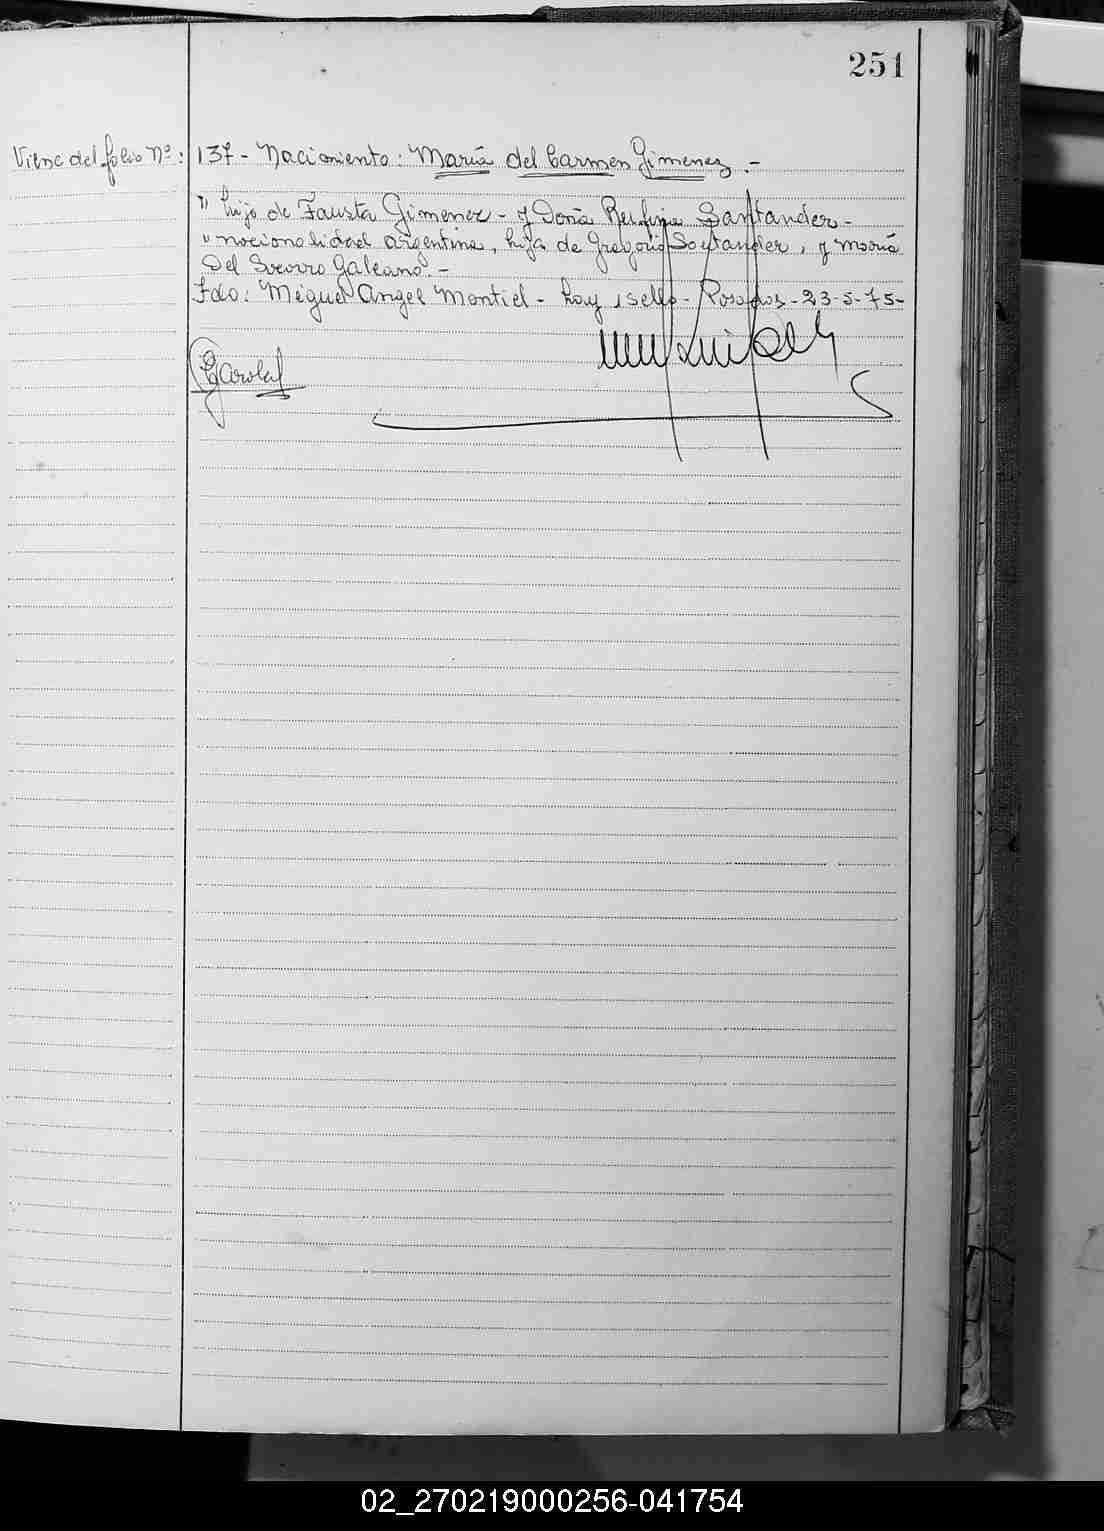 251
Viene del folio Nº: 137 - Nacimiento: María del Carmen Gimenez. -
" hijo de Fausta Gimenez - y Doña Rufina Santander -
" nacionalidad argentina, hija de Gregorio Santander, y María
Del Socorro Galeano. -
Fdo: Miguel Angel Montiel - hay 1 sello - 23-5-75-
02_270219000256-041754